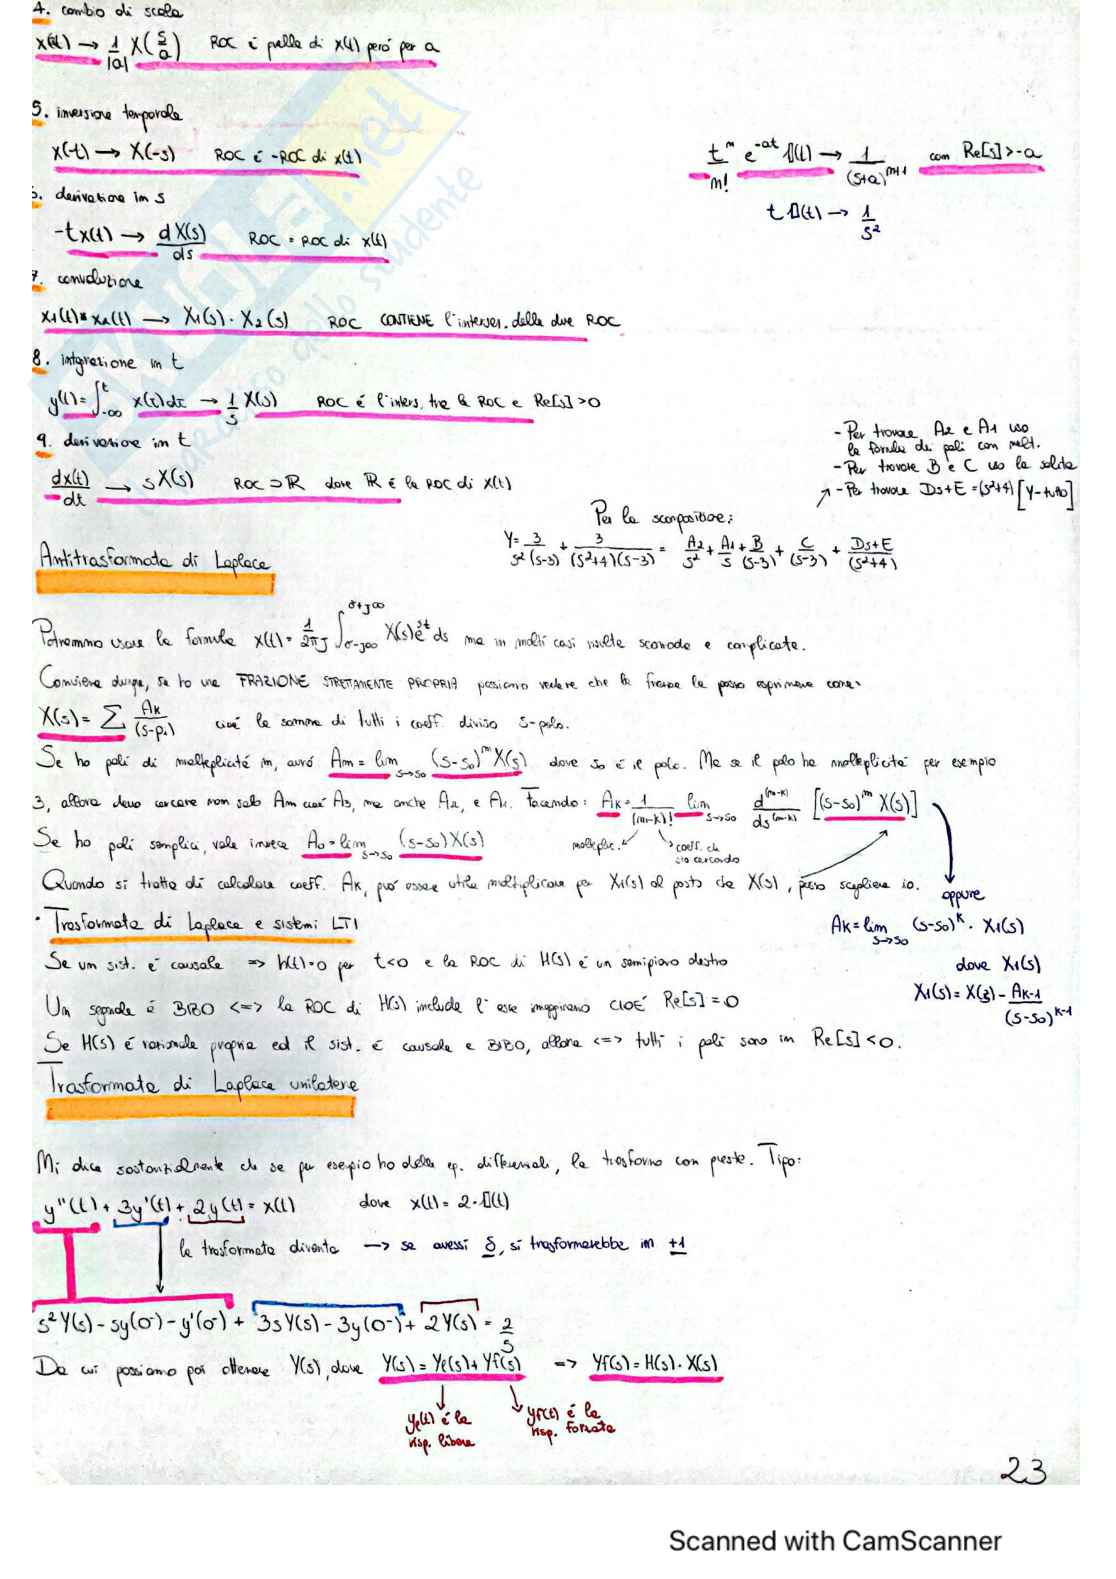 4. cambio di scala
x(at) → 1/|a| X(s/a) ROC è quella di x(t) però per a
5. inversione temporale
x(-t) → X(-s) ROC è -ROC di x(t)
t^n/n! e^-at 1(t) → 1/(s+a)^n+1 con Re[s]>-a
6. derivazione in s
t 1(t) → 1/s²
-t x(t) → dX(s)/ds ROC = ROC di x(t)
7. convoluzione
x1(t)*x2(t) → X1(s)·X2(s) ROC CONTIENE l'interser. delle due ROC
8. integrazione in t
y(t)=∫_-∞^t x(τ)dτ → 1/s X(s) ROC è l'inters. tra la ROC e Re[s]>0
9. derivazione in t
dx(t)/dt → sX(s) ROC ⊃ R dove R è la ROC di x(t)
- Per trovare A2 e A1 uso
la formula dei poli con molt.
- Per trovare B e C uso la solita
↗ - Per trovare Ds+E =(s²+4)[Y-tutto]
Per la scomposizione:
Y= 3/s²(s-3) + 3/(s²+4)(s-3) = A2/s² + A1/s + B/(s-3) + C/(s-3) + Ds+E/(s²+4)
Antitrasformata di Laplace
Potremmo usare la formula x(t)= 1/2πj ∫_σ-j∞^σ+j∞ X(s)e^st ds ma in molti casi risulta scomoda e complicata.
Conviene dunque, se ho una FRAZIONE STRETTAMENTE PROPRIA possiamo vedere che la frazione la posso esprimere come:
X(s)= Σ Ak/(s-pi) cioè la somma di tutti i coeff. diviso s-polo.
Se ho poli di molteplicità m, avrò Am = lim_s→s0 (s-s0)^m X(s) dove s0 è il polo. Ma se il polo ha molteplicità per esempio
3, allora devo cercare non solo Am cioè A3, ma anche A2, e A1. Facendo: Ak= 1/(m-k)! lim_s→s0 d^(m-k)/ds^(m-k) [(s-s0)^m X(s)]
Se ho poli semplici, vale invece A0 = lim_s→s0 (s-s0)X(s)
molteplic. coeff. che
sto cercando
Quando si tratta di calcolare coeff. Ak, può essere utile moltiplicare per X1(s) al posto che X(s), posso scegliere io.
oppure
Ak = lim_s→s0 (s-s0)^k · X1(s)
dove X1(s)
X1(s)= X(s) - Ak-1/(s-s0)^k-1
· Trasformata di Laplace e sistemi LTI
Se un sist. è causale => h(t)=0 per t<0 e la ROC di H(s) è un semipiano destro
Un segnale è BIBO <=> la ROC di H(s) include l'asse immaginario CIOÈ Re[s]=0
Se H(s) è razionale propria ed il sist. è causale e BIBO, allora <=> tutti i poli sono in Re[s]<0.
Trasformata di Laplace unilatera
Mi dice sostanzialmente che se per esempio ho delle eq. differenziali, la trasformo con queste. Tipo:
y''(t) + 3y'(t) + 2y(t) = x(t) dove x(t) = 2·1(t)
la trasformata diventa → se avessi δ, si trasformerebbe in +1
s²Y(s) - sy(0-) - y'(0-) + 3sY(s) - 3y(0-) + 2Y(s) = 2/s
Da cui possiamo poi ottenere Y(s), dove Y(s) = Yl(s) + Yf(s) => Yf(s) = H(s)·X(s)
yl(t) è la
risp. libera
yf(t) è la
risp. forzata
23
Scanned with CamScanner